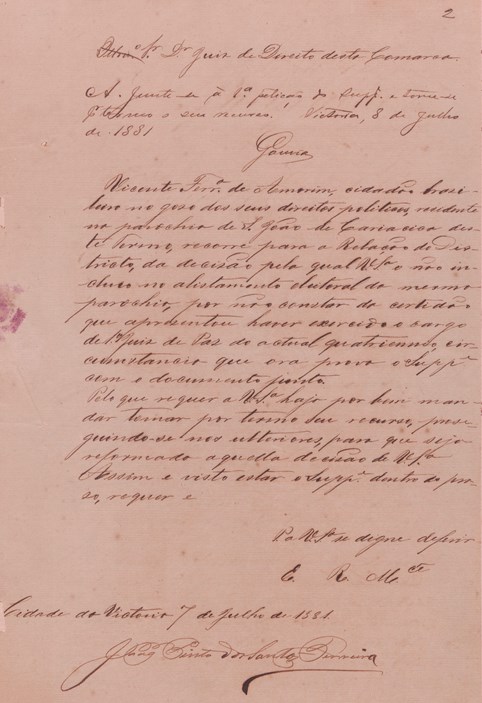 2
Illmo. Sr. Dr. Juiz de Direito desta Comarca.
A. Junte-se á 1ª petição do Suppe. e tome-se
por termo o seu recurso. Victoria, 8 de Julho
de 1881
Gouvea
Vicente Ferrª de Amorim, cidadão brasi-
leiro no goso dos seus direitos politicos, residente
na parochia de S. João de Cariacica des-
te Termo, recorre para a Relação do Dis-
tricto, da decisão pela qual V. Sª o não in-
cluio no alistamento eleitoral da mesma
parochia, por não constar da certidão
que apresentou haver exercido o cargo
de 1º Juiz de Paz do actual quatriennio, cir-
cumstancia que ora prova o Suppe
com o documento junto.
Pelo que requer a V. Sª haja por bem man-
dar tomar por termo seu recurso, prose-
guindo-se nos ulteriores, para que seja
reformada aquella decisão de V. Sª
Assim e visto estar o Suppe dentro do pra-
so, requer e
P. a V. Sª se digne deferir
E. R. Mce
Cidade da Victoria 7 de Julho de 1881.
Pinto dos Santos Ferreira